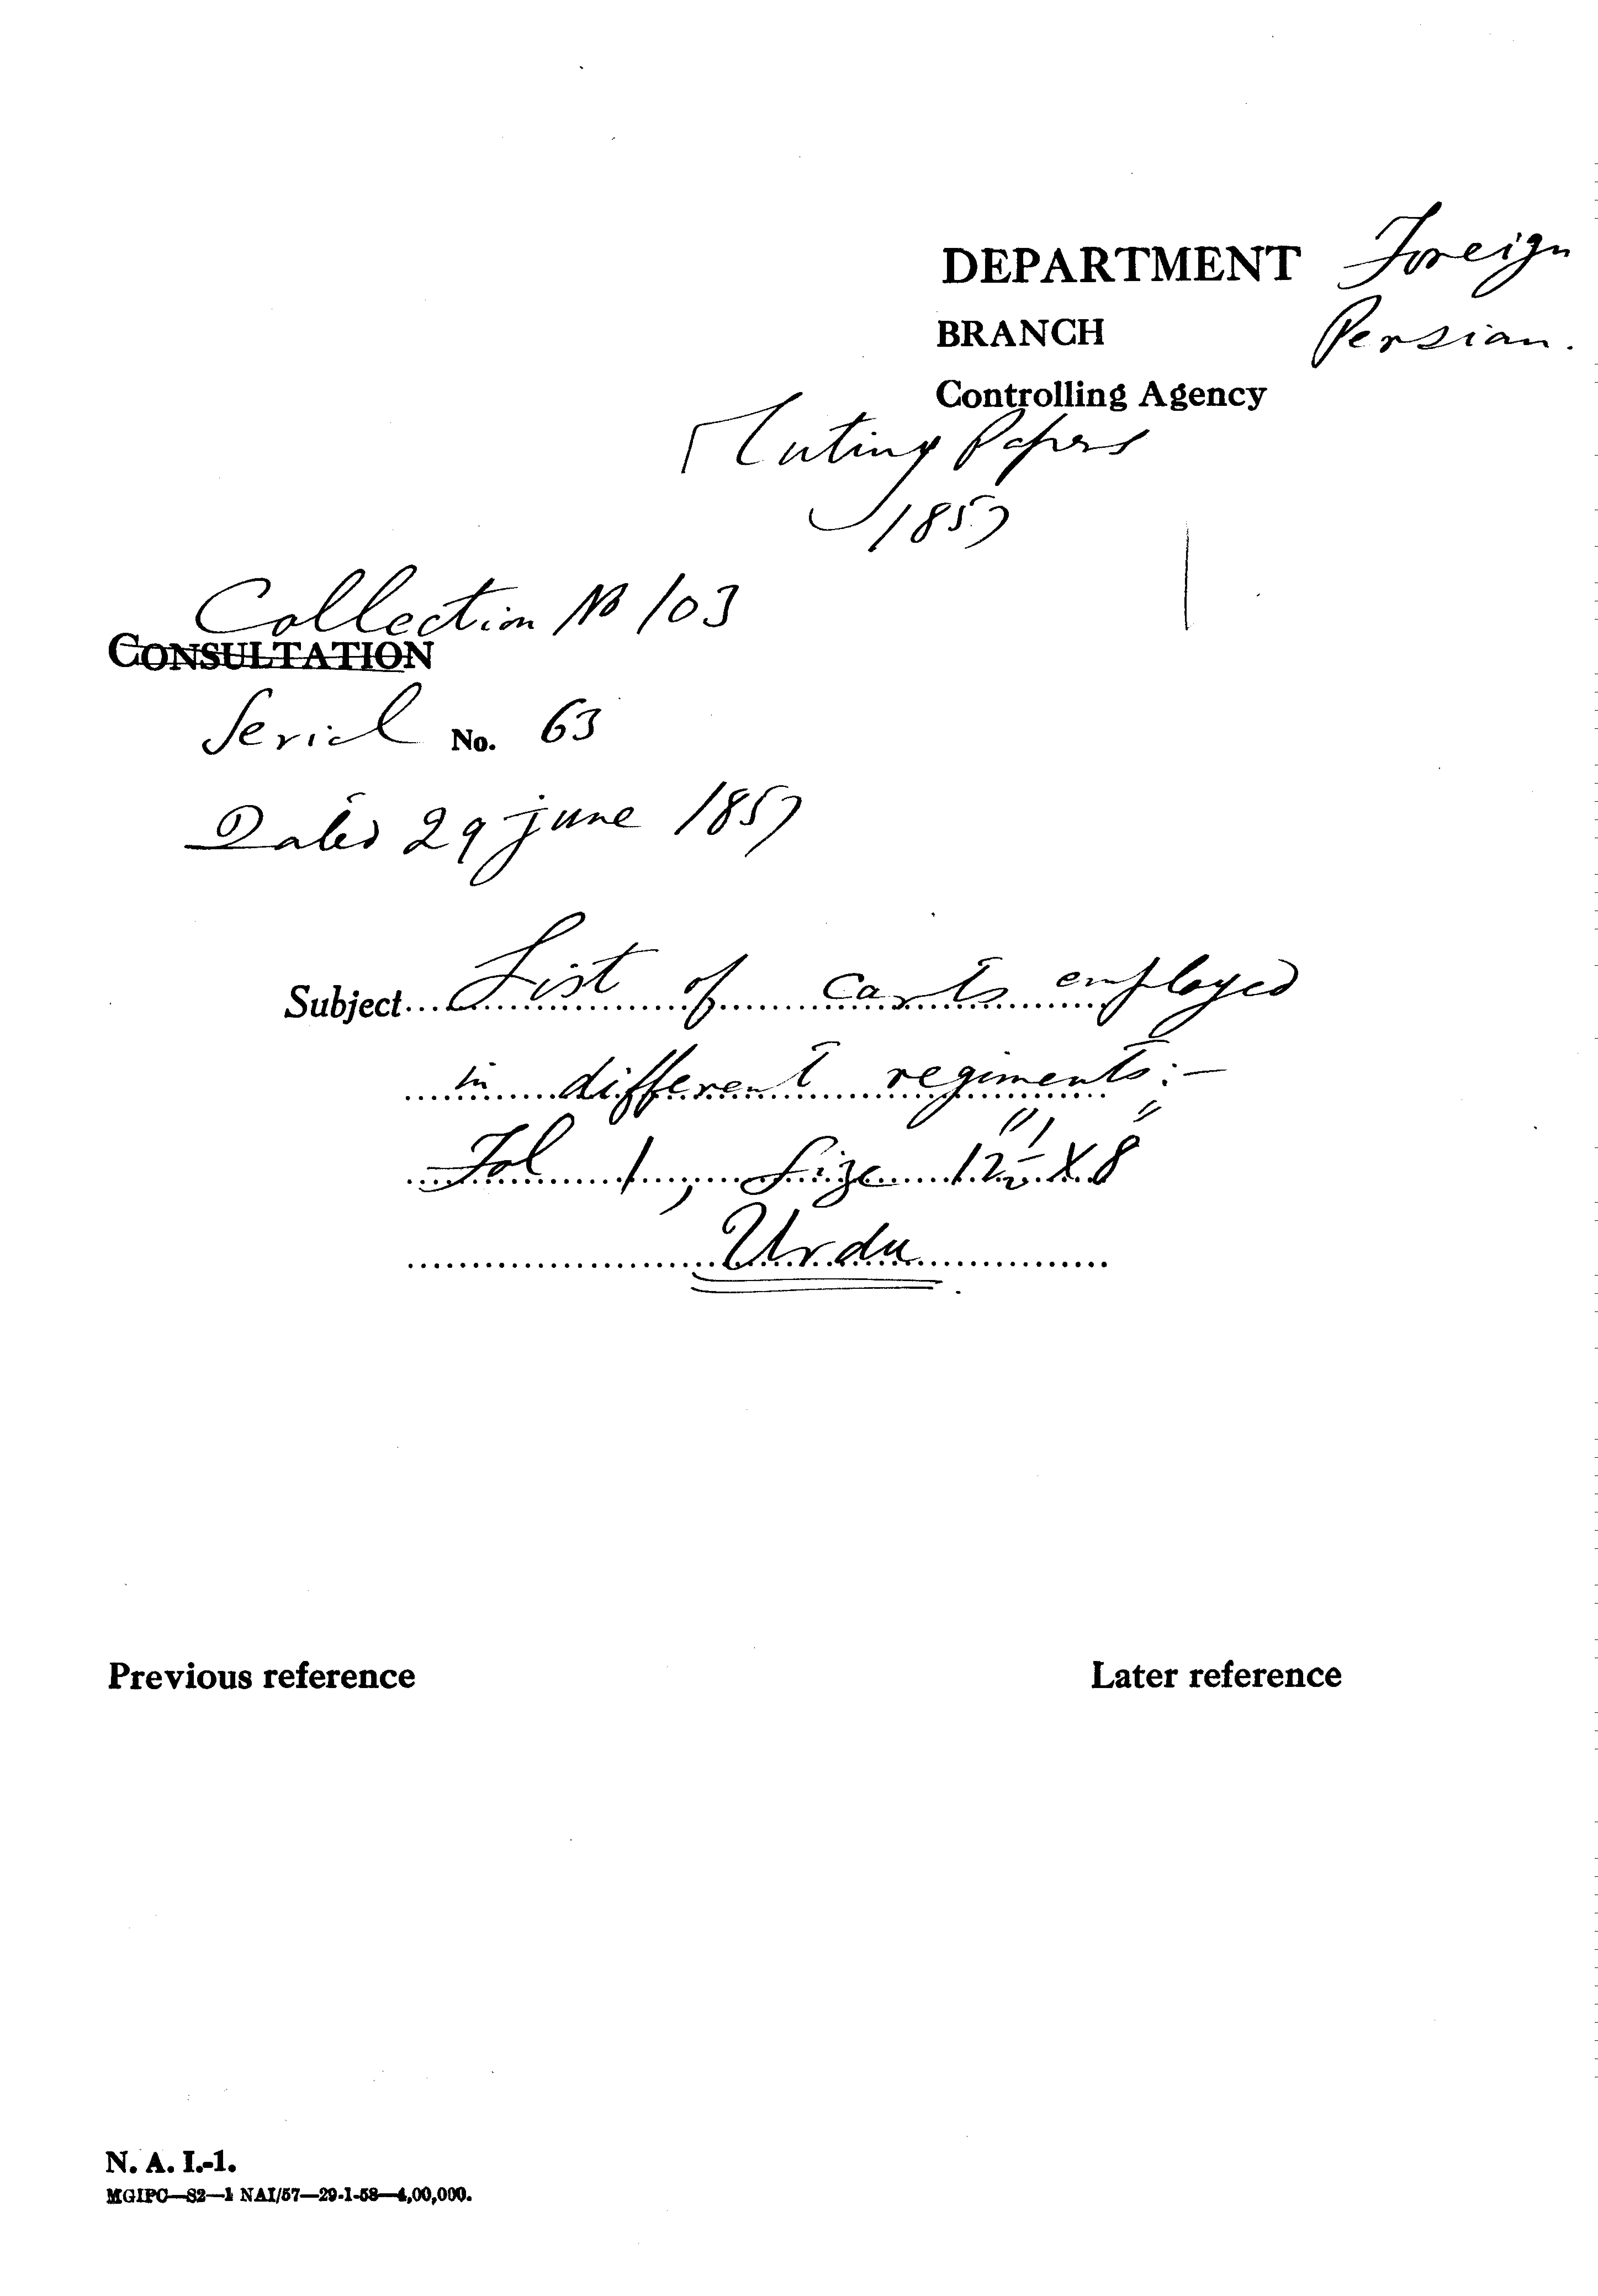 DEPARTMENT Foreign
BRANCH Persian.
Controlling Agency
Mutiny Papers
1857
Collection No 103
CONSULTATION
Serial No. 63
Dated 29 june 1857
Subject List of carts employed
in different regiments:-
Fol 1, Size 12½" X 8"
Urdu
Previous reference
Later reference
N. A. I.-1.
MGIPC—S2—1 NAI/57—29-1-58—4,00,000.